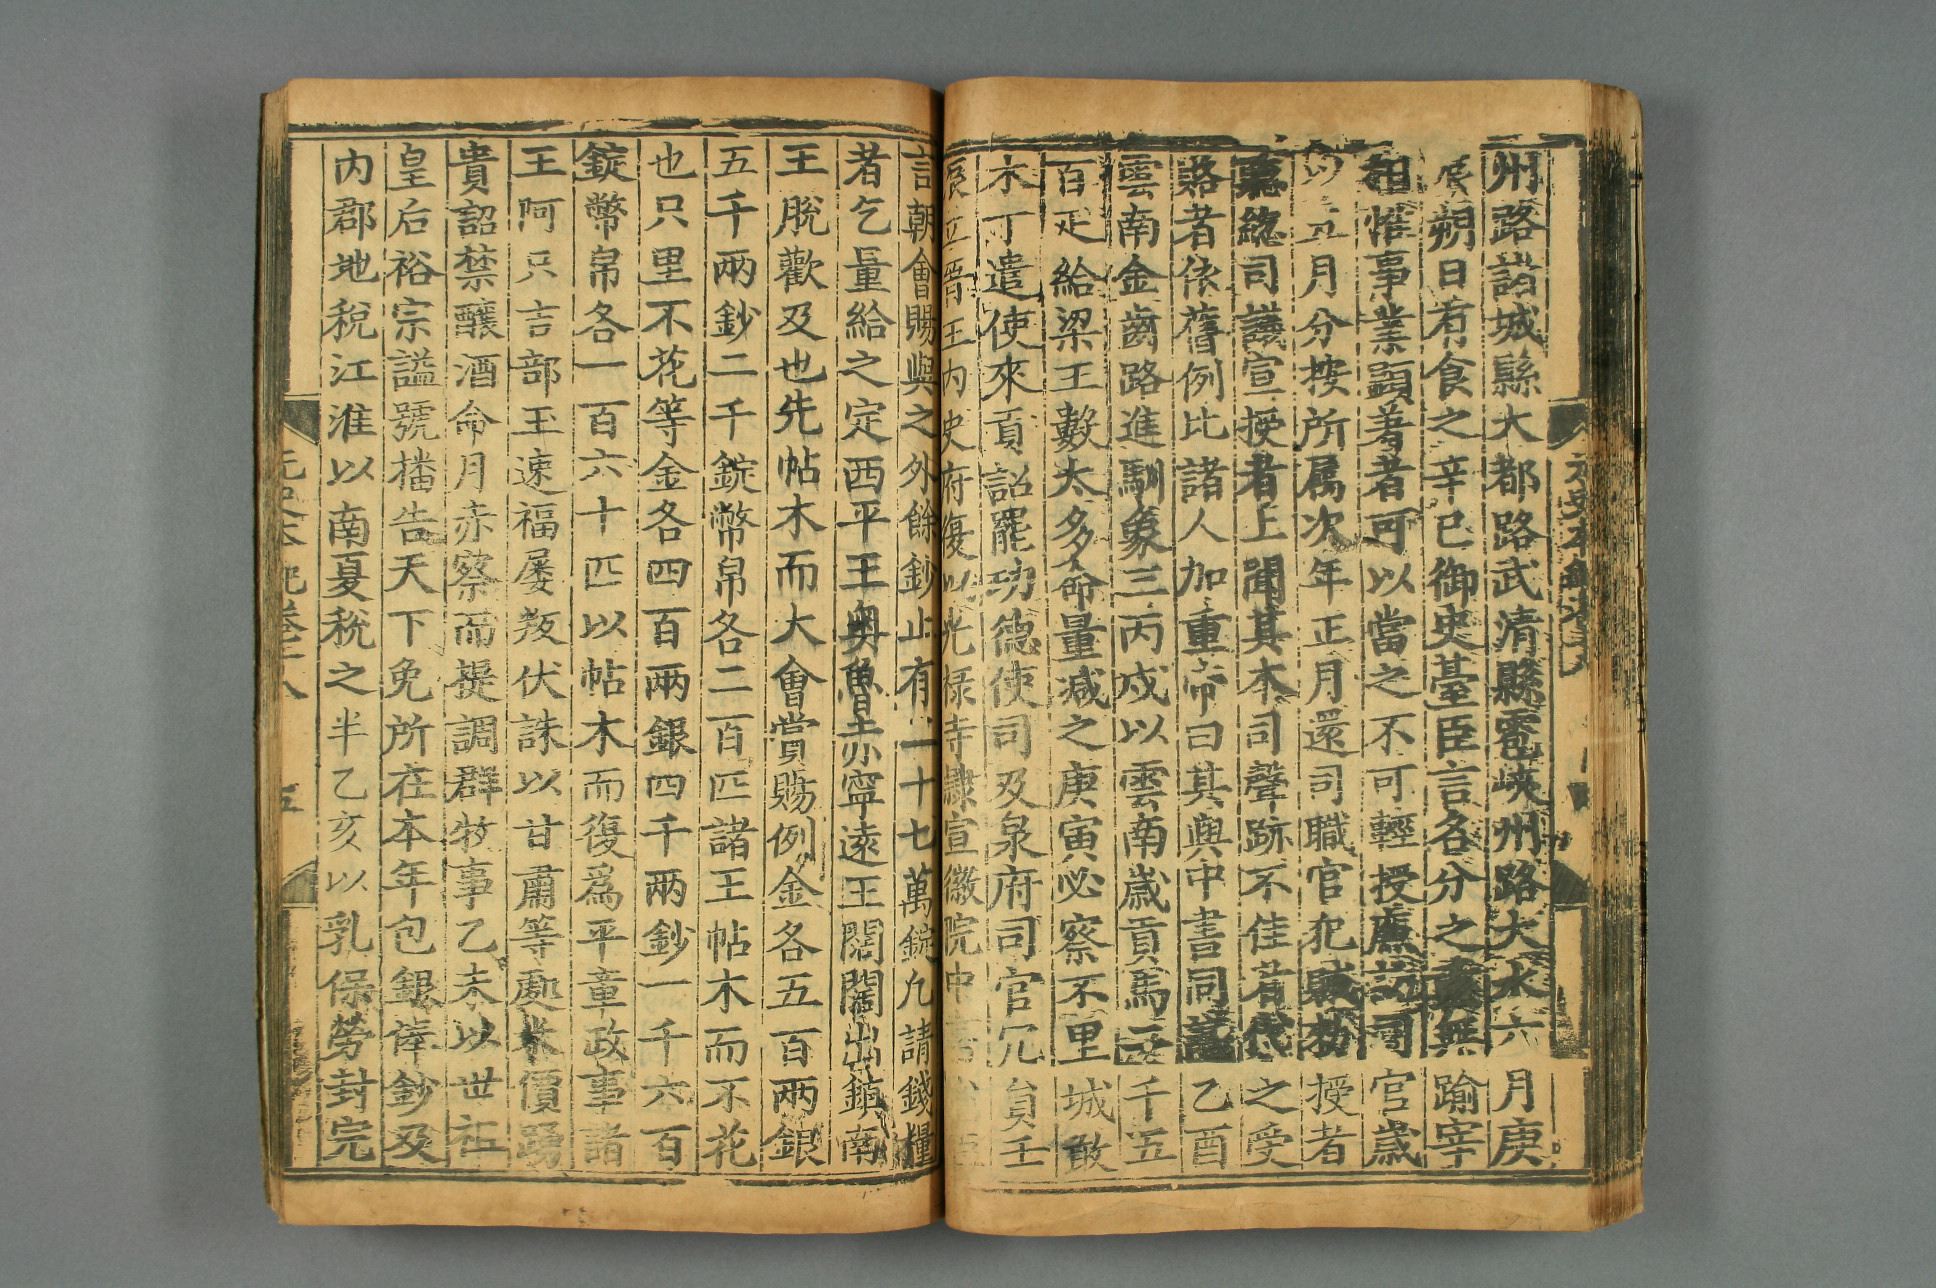 州路諸城縣大都路武清縣雹峽州路大水六月庚
辰朔日有食之辛巳御史臺臣言名分之重無踰宰
相惟事業顯著者可以當之不可輕授廉訪司官歲
以五月分按所屬次年正月還司職官犯贓勑授者
聽總司議宣授者上聞其本司聲跡不佳者代之受
賂者依舊例比諸人加重帝曰其與中書同議乙酉
雲南金齒路進馴象三丙戌以雲南歲貢馬二千五
百疋給梁王數太多命量減之庚寅必察不里城敢
木丁遣使來貢詔罷功德使司及泉府司官冗員壬
辰立晉王內史府復以光祿寺隸宣徽院中書省臣
言朝會賜與之外餘鈔止有一十七萬錠凡請錢糧
者乞量給之定西平王奧魯赤寧遠王闊闊出鎮南
王脫歡及也先帖木而大會賞賜例金各五百兩銀
五千兩鈔二千錠幣帛各二百匹諸王帖木而不花
也只里不花等金各四百兩銀四千兩鈔一千六百
錠幣帛各一百六十匹以帖木而復爲平章政事諸
王阿只吉部玉速福屡叛伏誅以甘肅等處米價踴
貴詔禁釀酒命月赤察而提調群牧事乙未以世祖
皇后裕宗謚號播告天下免所在本年包銀俸鈔及
內郡地稅江淮以南夏稅之半乙亥以乳保勞封完
元史本紀卷十八
五